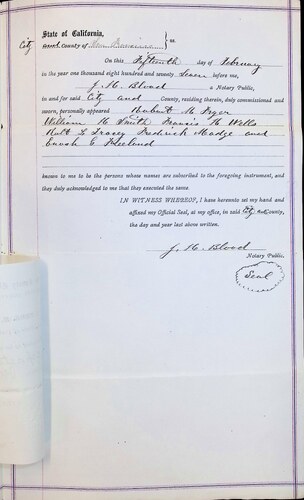 State of California,
City and County of San Francisco } ss.
On this Fifteenth day of February
in the year one thousand eight hundred and seventy Seven before me,
J. H. Blood a Notary Public,
in and for said City and County, residing therein, duly commissioned and
sworn, personally appeared Robert M Fryer
William H Smith Francis H Wells
L Tracey Fredrick Madge and
Enoch C
known to me to be the persons whose names are subscribed to the foregoing instrument, and
they duly acknowledged to me that they executed the same.
IN WITNESS WHEREOF, I have hereunto set my hand and
affixed my Official Seal, at my office, in said City and county,
the day and year last above written.
J. H. Blood
Notary Public.
Seal